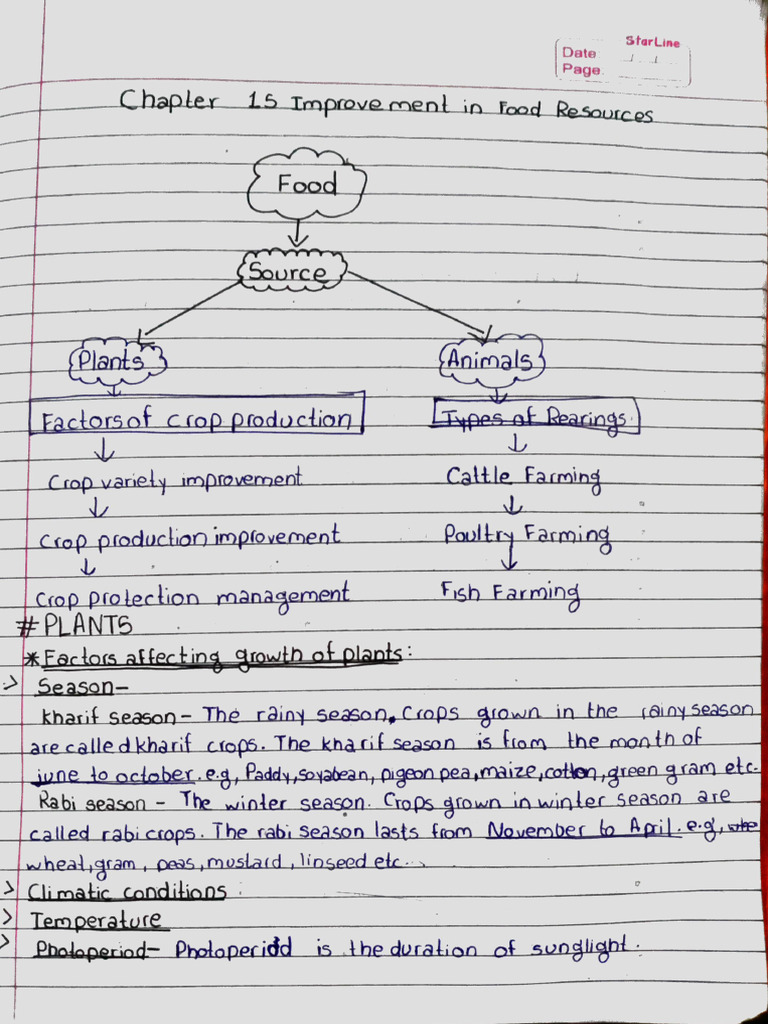 StarLine
Date
Page.
Chapter 15 Improvement in Food Resources
Food
Source
Plants
Animals
Factors of crop production
Types of Rearings.
Crop variety improvement
Cattle Farming
Crop production improvement
Poultry Farming
Crop protection management
Fish Farming
#PLANTS
*Factors affecting growth of plants:
Season-
kharif season - The rainy season. Crops grown in the rainy season
are called kharif crops. The kharif season is from the month of
june to october. e.g, Paddy, soyabean, pigeon pea, maize, cotton, green gram etc.
Rabi season - The winter season. Crops grown in winter season are
called rabi crops. The rabi season lasts from November to April. e.g,
wheat, gram, peas, mustard, linseed etc...
Climatic conditions:
Temperature
Photoperiod- Photoperiod is the duration of sunglight.